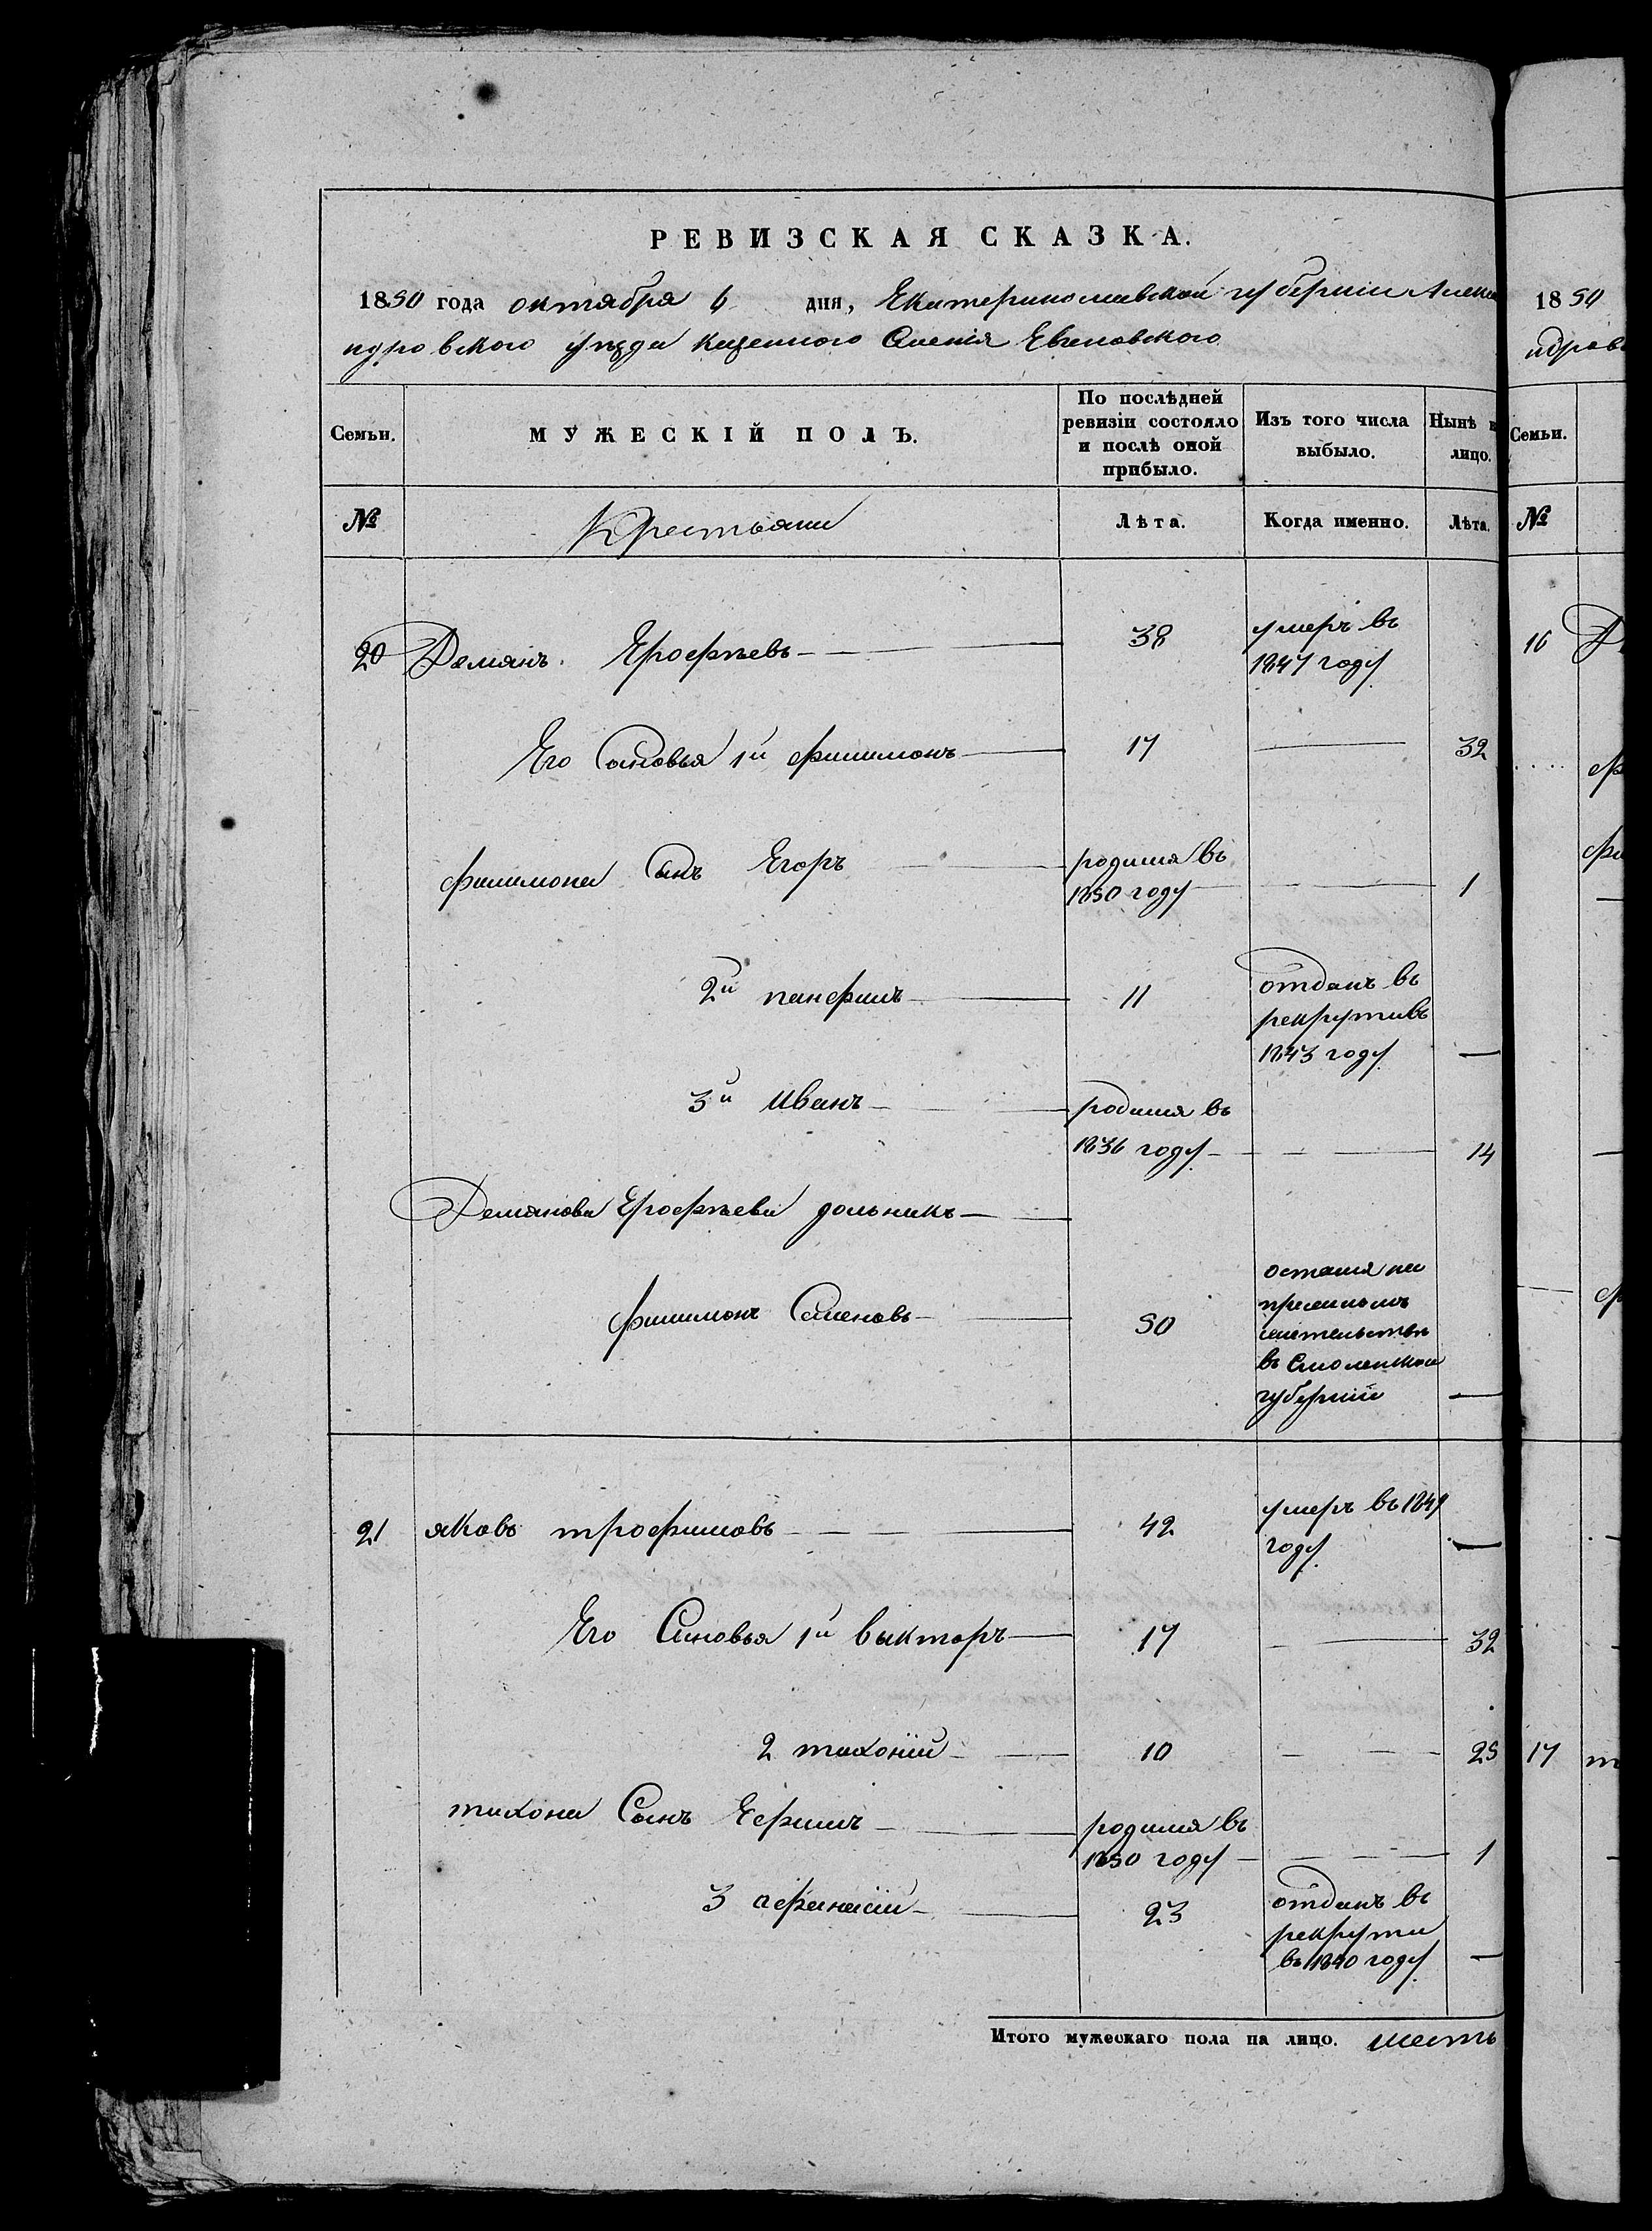 РЕВИЗСКАЯ СКАЗКА.
1850 года октября 6 дня, Екатеринославской губерніи Алекса
ндровского уѣзда казенного Селенія Евгеновского
Семьи.
МУЖЕСКІЙ ПОЛЪ.
По послѣдней
ревизіи состояло
и послѣ оной
прибыло.
Изъ того числа
выбыло.
Нынѣ н
лицо.
№
Крестьяни
Лѣта.
Когда именно.
Лѣта.
20 Демянъ Ерофѣевъ 38 умеръ въ
1847 году
Его Сыновья 1й филимонъ 17 32
филимона Сынъ Егоръ родился въ
1850 году 1
2й панфилъ 11 отданъ въ
рекрути въ
1843 году
3й иванъ родился въ
1836 году 14
Демянова Ерофѣева дольникъ
филимонъ Семеновъ 50 остался на
прежнемъ
жительствѣ
въ Смоленской
губерніи
21 яковъ трофимовъ 42 умеръ въ 1849
году
Его Синовья 1й выкторъ 17 32
2 тихоній 10 25
тихона Сынъ Ефимъ родился въ
1850 году 1
3 афанасій 23 отданъ въ
рекрути
въ 1840 году
Итого мужескаго пола на лицо. шесть
1850
ндров
Семьи.
№
16
17